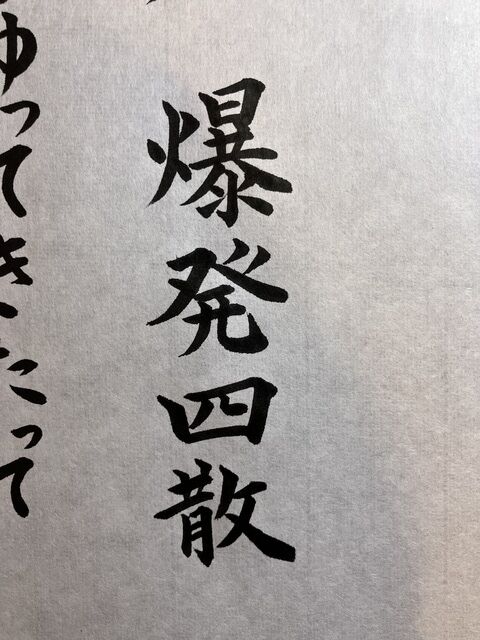 爆発四散
ゆってきたって